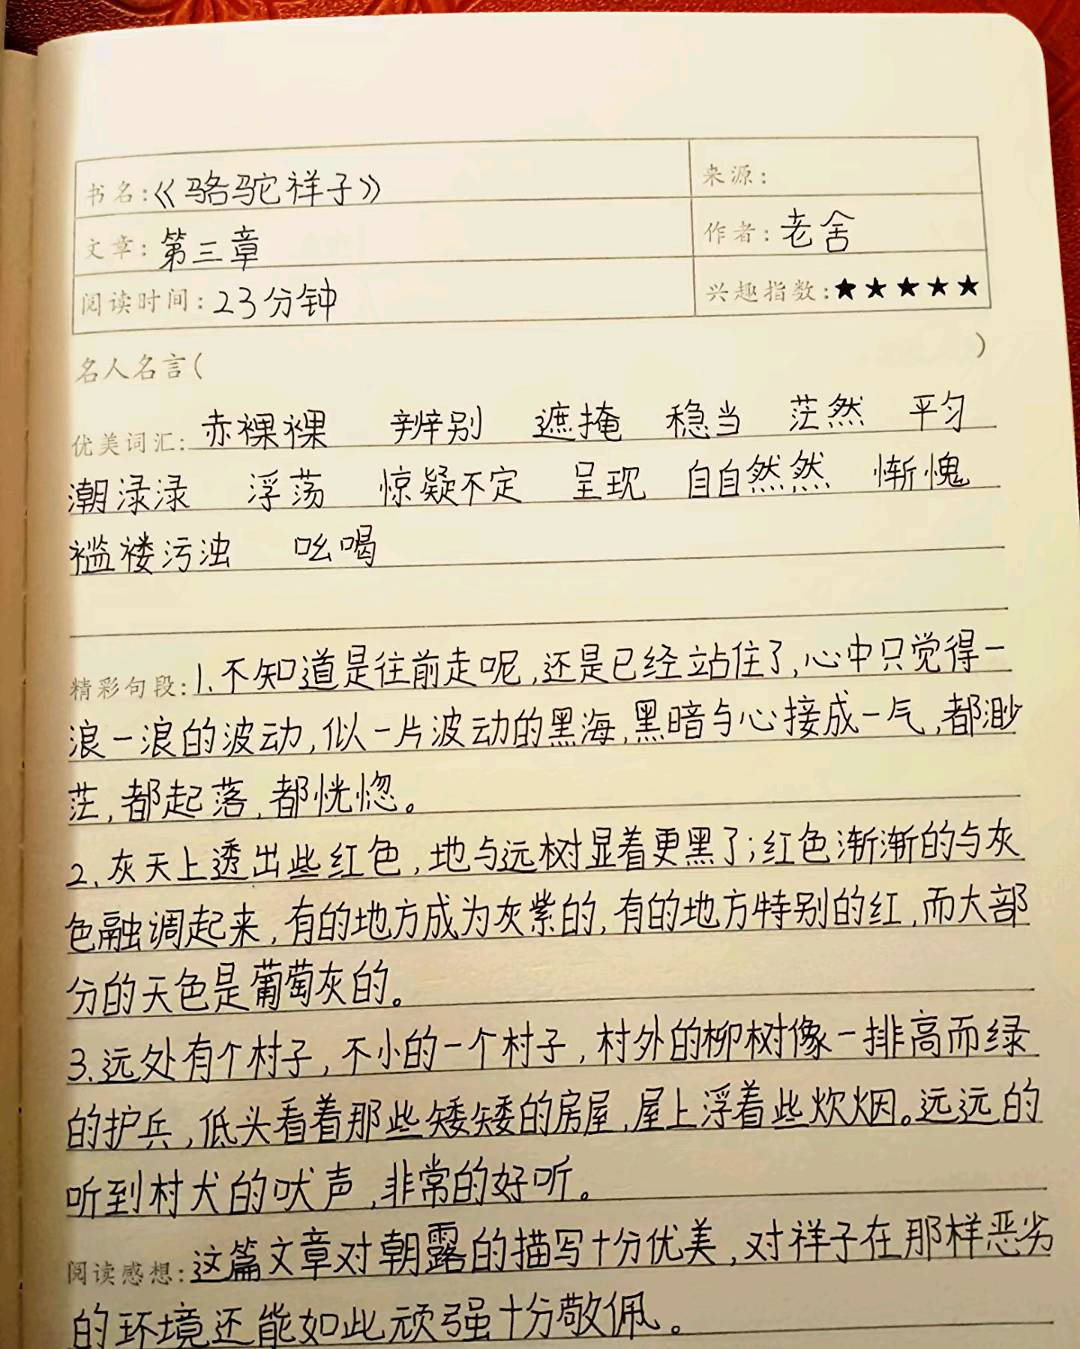 书名:《骆驼祥子》 来源:
文章:第三章 作者:老舍
阅读时间:23分钟 兴趣指数:★★★★★
名人名言( )
优美词汇:赤裸裸 辨别 遮掩 稳当 茫然 平匀
潮渌渌 浮荡 惊疑不定 呈现 自自然然 惭愧
褴褛污浊 吆喝
精彩句段:1.不知道是往前走呢,还是已经站住了,心中只觉得一
浪一浪的波动,似一片波动的黑海,黑暗与心接成一气,都渺
茫,都起落,都恍惚。
2.灰天上透出些红色,地与远树显着更黑了;红色渐渐的与灰
色融调起来,有的地方成为灰紫的,有的地方特别的红,而大部
分的天色是葡萄灰的。
3.远处有个村子,不小的一个村子,村外的柳树像一排高而绿
的护兵,低头看着那些矮矮的房屋,屋上浮着些炊烟。远远的
听到村犬的吠声,非常的好听。
阅读感想:这篇文章对朝露的描写十分优美,对祥子在那样恶劣
的环境还能如此顽强十分敬佩。